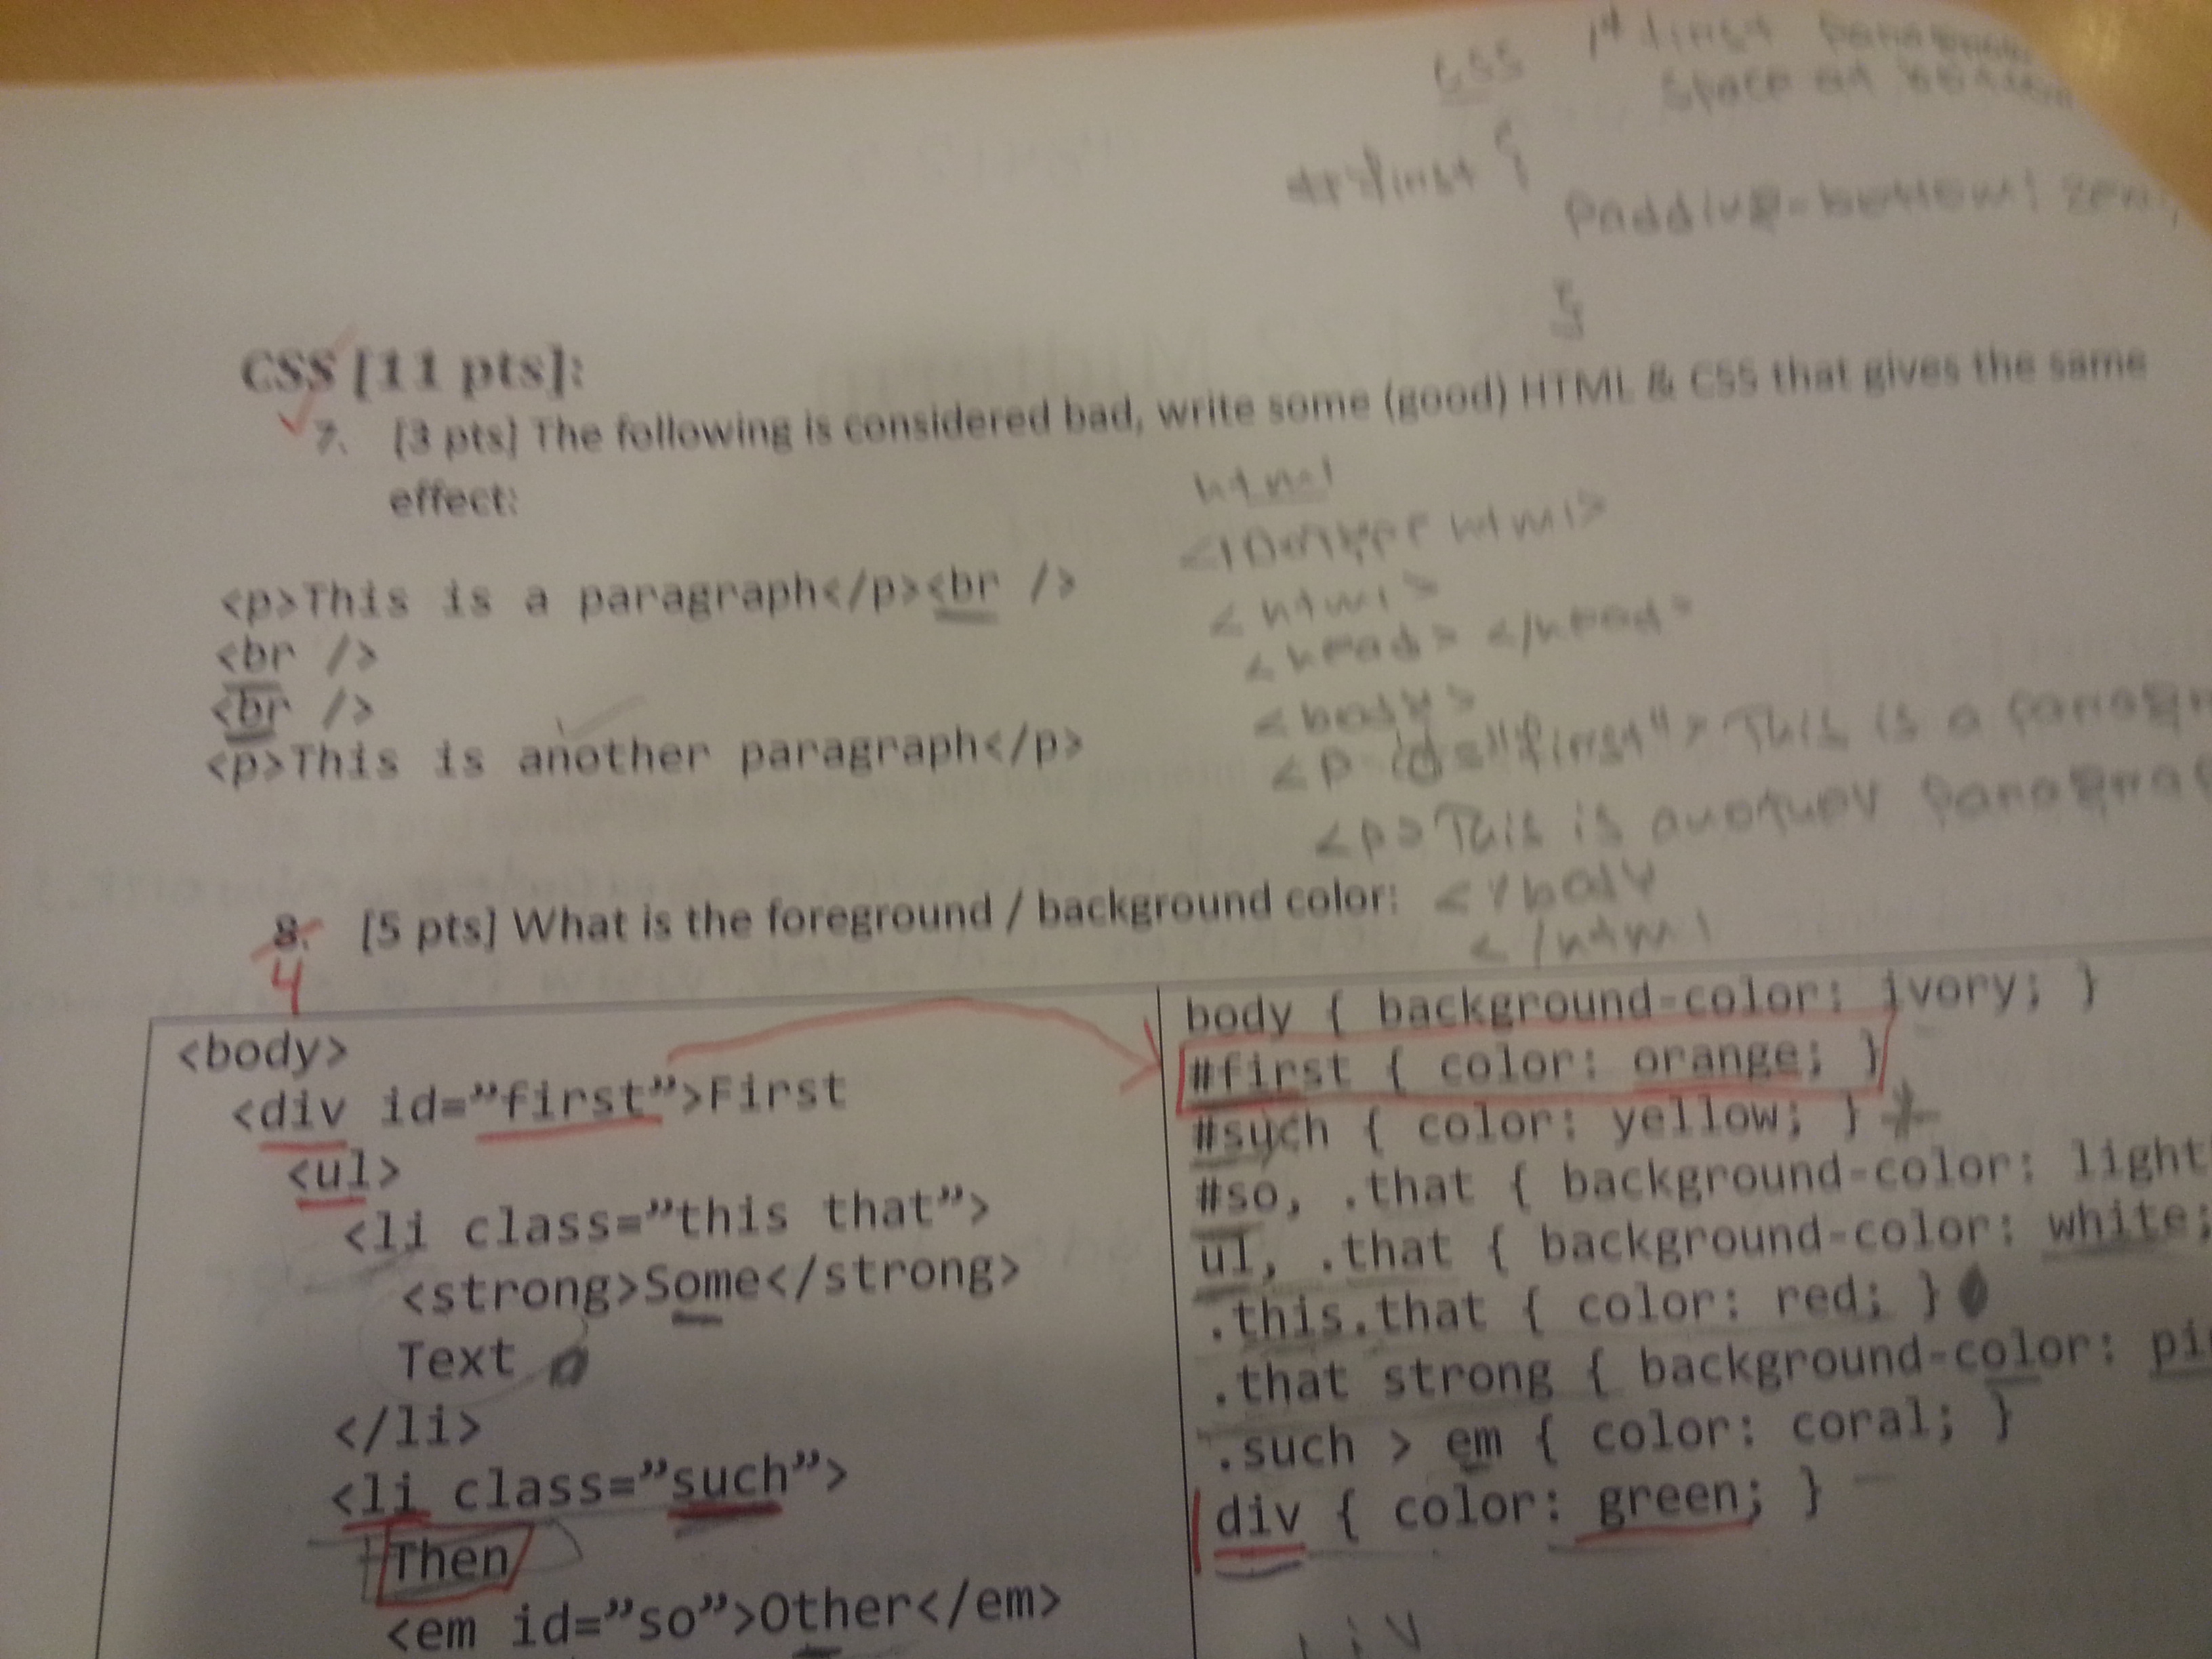 CSS 1st first
Space at
#first {
Padding-bottom: 
}
CSS [11 pts]:
7. [3 pts] The following is considered bad, write some (good) HTML & CSS that gives the same
effect:
html
<!Doctype html>
<html>
<head> </head>
<body>
<p id="first"> This is a
<p>This is another
</body
</html
<p>This is a paragraph</p><br />
<br />
<br />
<p>This is another paragraph</p>
8. [5 pts] What is the foreground / background color:
4
<body>
<div id=”first”>First
<ul>
<li class=”this that”>
<strong>Some</strong>
Text
</li>
<li class=”such”>
Then
<em id=”so”>Other</em>
body { background-color: ivory; }
#first { color: orange; }
#such { color: yellow; }
#so, .that { background-color: light
ul, .that { background-color: white;
.this.that { color: red; }
.that strong { background-color: pi
.such > em { color: coral; }
div { color: green; }